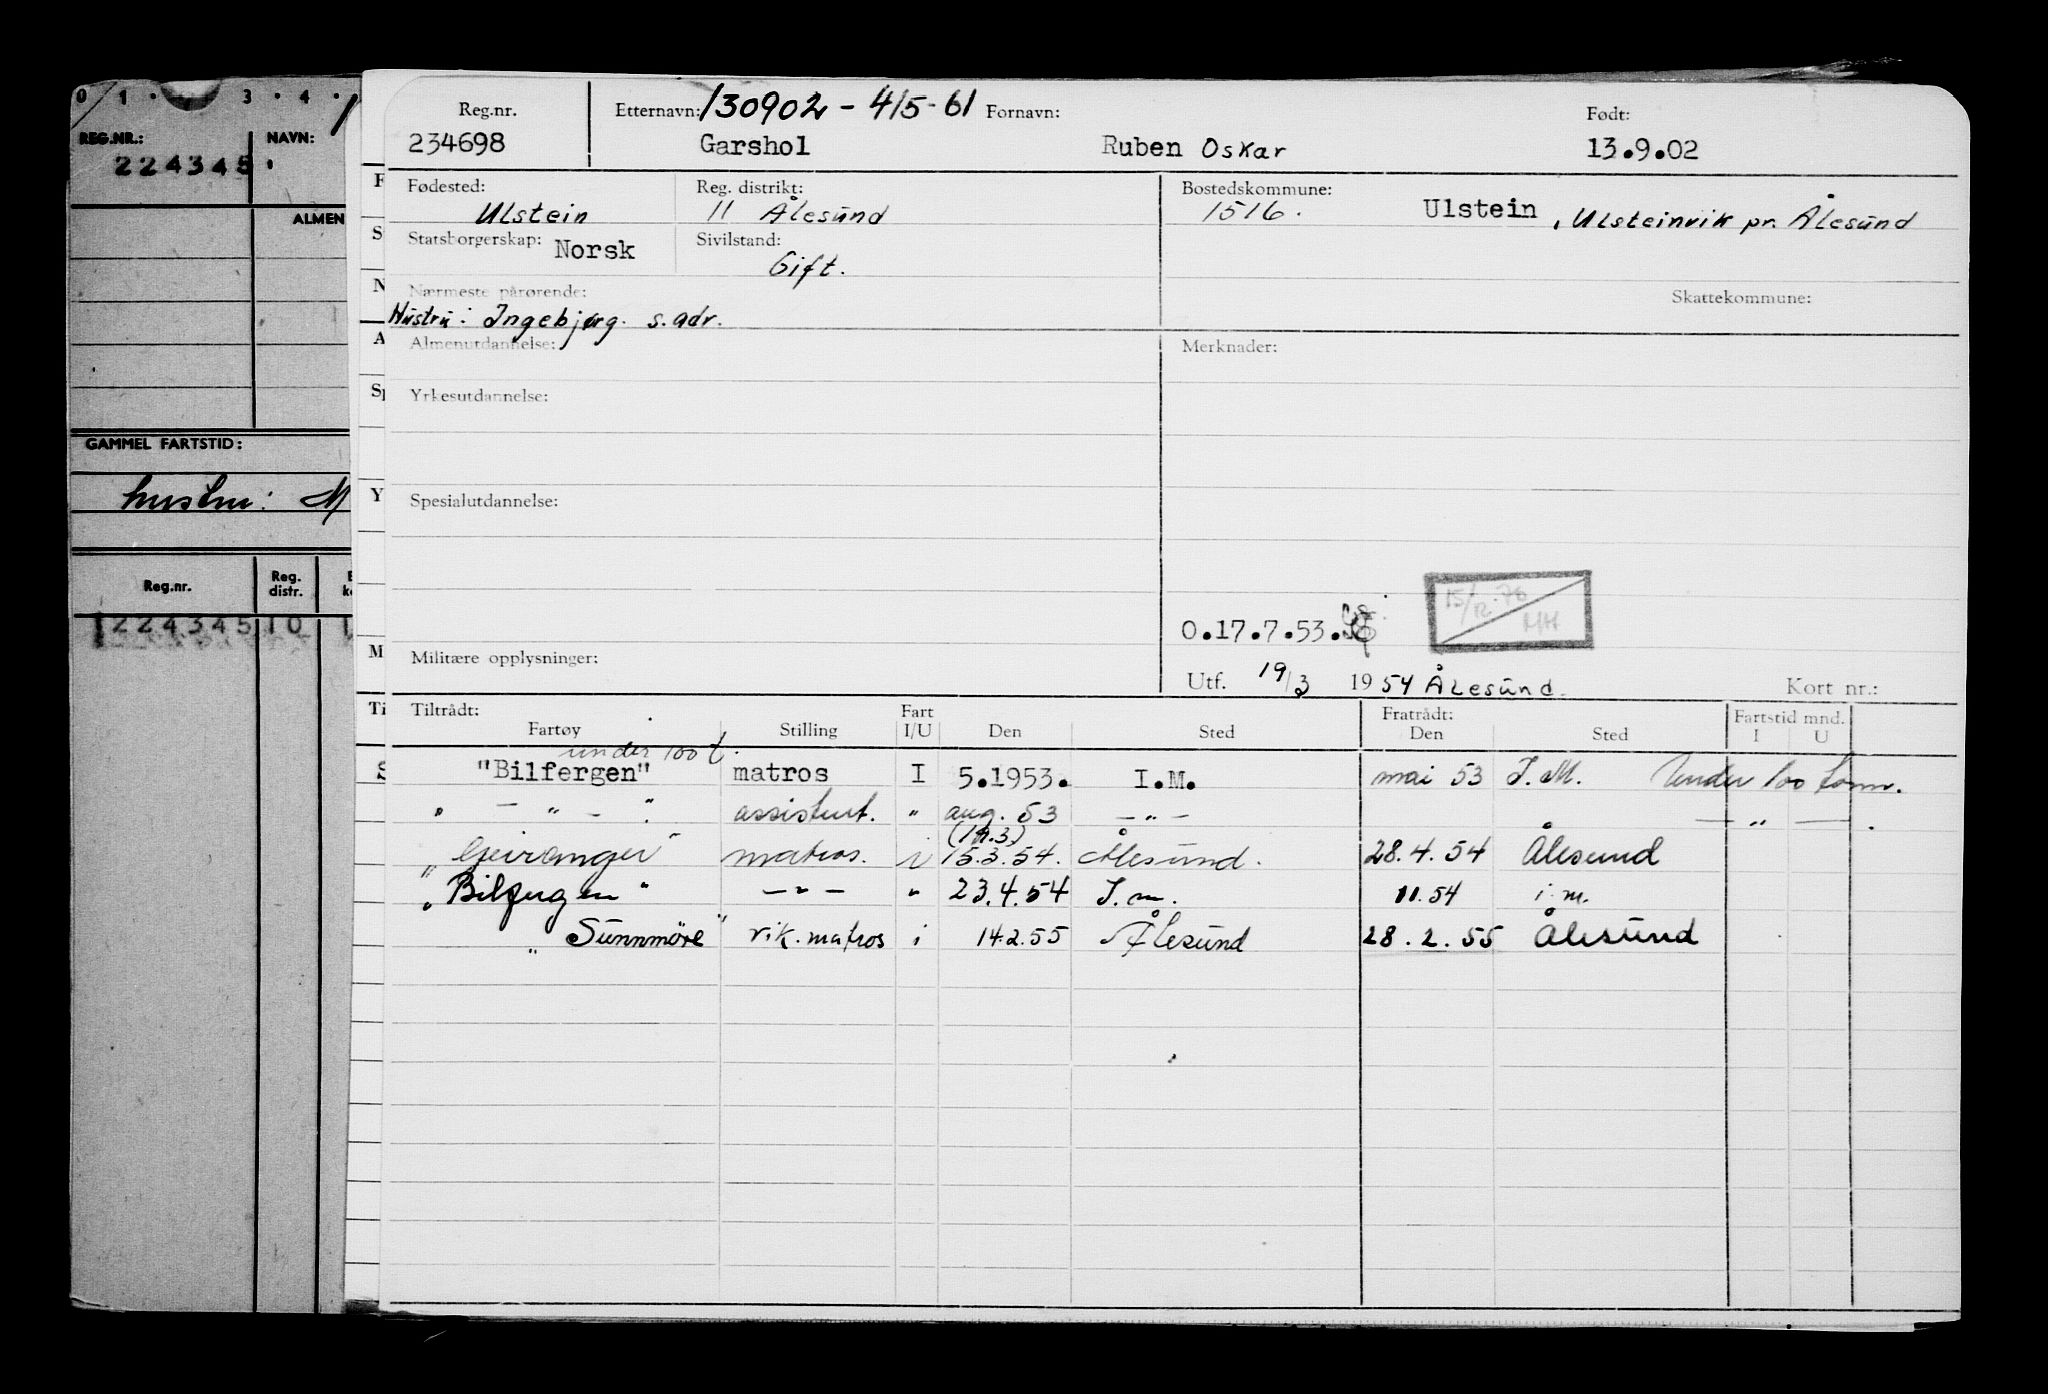 0 1 · 3 · 4 ·
REG.NR.: NAVN:
224345
ALMEN
GAMMEL FARTSTID:
hustru: M
Reg.nr. Reg. distr.
224345 10
Reg.nr. Etternavn: 130902 - 415-61 Fornavn: Født:
234698 Garshol Ruben Oskar 13.9.02
Fødested: Reg. distrikt: Bostedskommune:
Ulstein 11 Ålesund 1516. Ulstein, Ulsteinvik pr. Ålesund
Statsborgerskap: Norsk Sivilstand:
Gift.
Nærmeste pårørende: Skattekommune:
Hustru: Ingebjørg. s. adr.
Almenutdannelse: Merknader:
Yrkesutdannelse:
Spesialutdannelse:
15/12.76
MH
0.17.7.53.
Militære opplysninger:
Utf. 19/3 1954 Ålesund. Kort nr.:
Tiltrådt: Fart Fratrådt: Fartstid mnd.
Fartøy Stilling I/U Den Sted Den Sted I U
under 100 t.
"Bilfergen" matros I 5.1953. I.M. mai 53 I.M. Under 100 tonn.
" — " — " assistent. " aug. 53 — " — — " — .
(19.3)
"Geiranger" matros. i 15.3.54. Ålesund. 28.4.54 Ålesund
"Bilfergen" — " — " 23.4.54 I.m. 11.54 i.m.
"Sunnmöre" vik. matros i 14.2.55 Ålesund 28.2.55 Ålesund